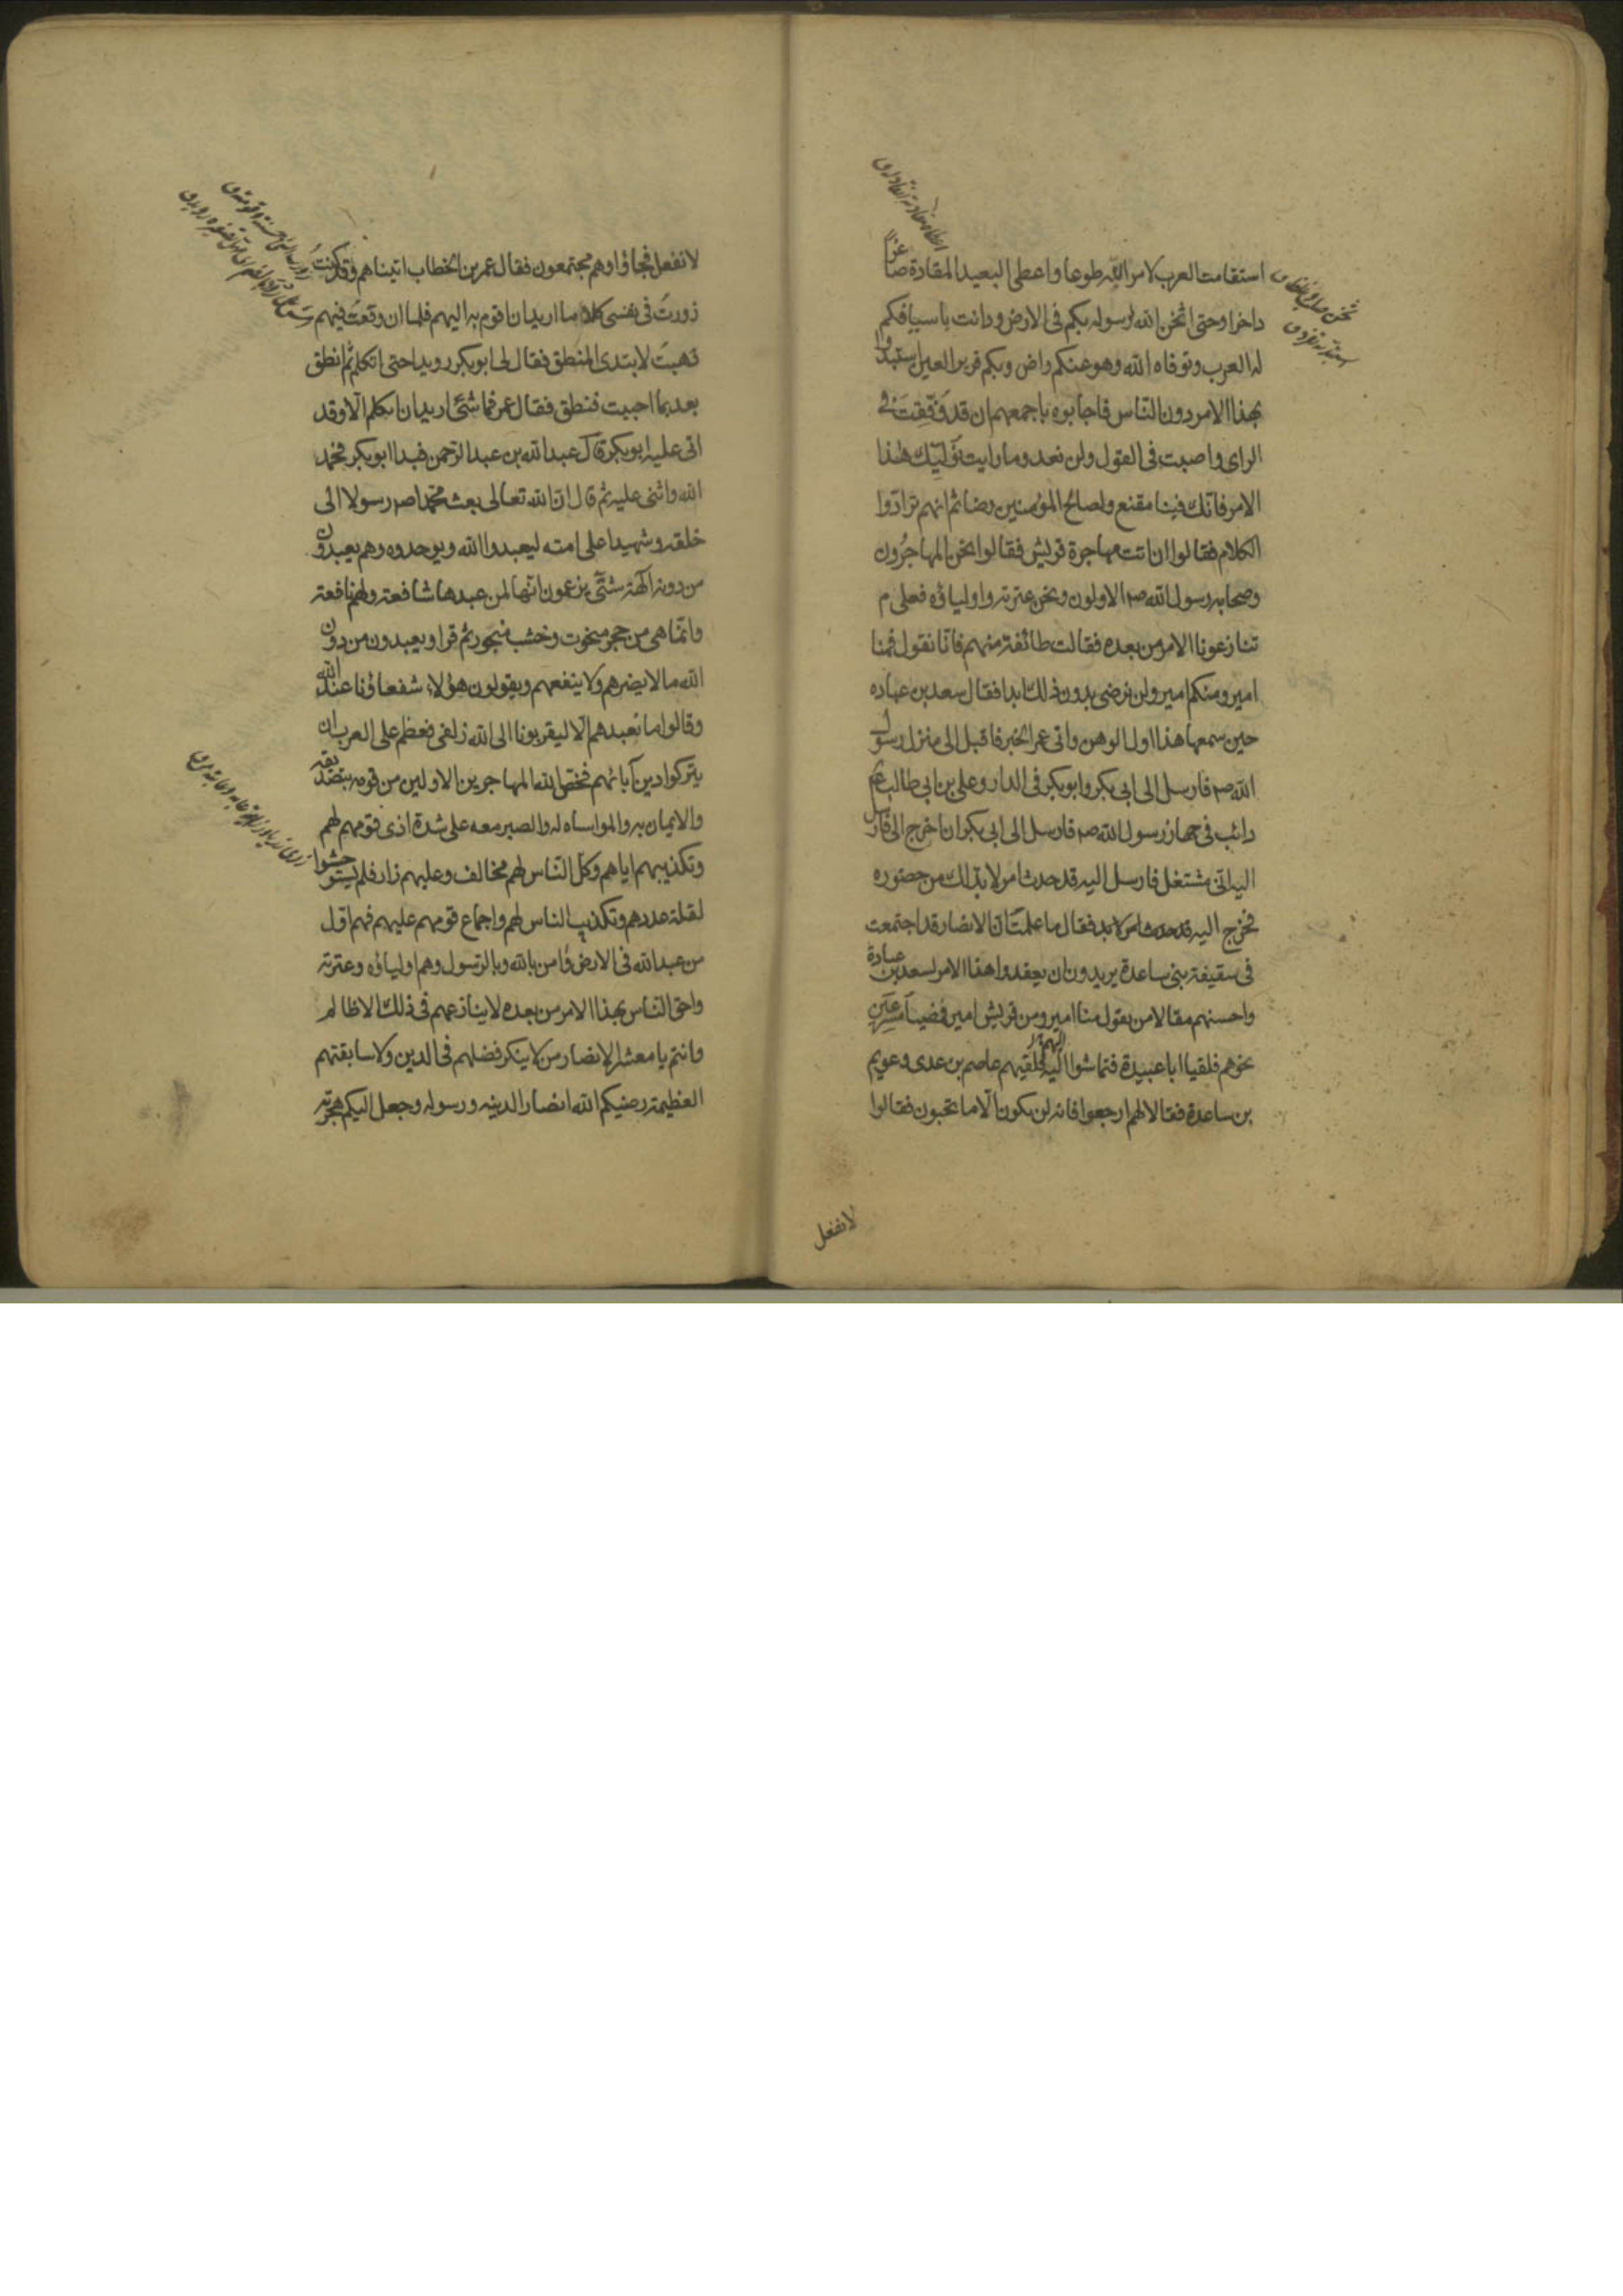 استقامت العرب لامر الله طوعا واعطى البعيد المقادة صاغرا
داخرا وحتى اثخن الله لرسوله بكم في الارض ودانت باسيافكم
له العرب وتوفاه الله وهو عنكم راض وبكم قرير العين استبدوا
بهذا الامر دون الناس فاجابوه باجمعهم ان قد وفقت في
الراي واصبت في القول ولن نعد وما رايت نوليك هذا
الامر فانك فينا مقنع ولصالح المؤمنين رضا ثم انهم ترادوا
الكلام فقالوا ان ابت مهاجرة قريش فقالوا نحن المهاجرون
وصحابه رسول الله صم الاولون ونحن عترته واولياؤه فعلى م
تنازعونا الامر من بعده فقالت طائفة منهم فانا نقول فمنا
امير ومنكم امير ولن نرضى بدون ذلك ابدا فقال سعد بن عباده
حين سمعها هذا اول الوهن واتى عمر الخبر فاقبل الى منزل رسول
الله صم فارسل الى ابي بكر وابو بكر في الدار وعلي بن ابي طالب عم
دائب في جهاز رسول الله صم فارسل الى ابي بكر ان اخرج الى فارسل
اليه اني مشتغل فارسل اليه قد حدث امر لا بد لك من حضوره
فخرج اليه فقال ما علمت ان الانصار قد اجتمعت
في سقيفة بني ساعدة يريدون ان يعقدوا هذا الامر لسعد بن عبادة
واحسنهم مقالا من يقول منا امير ومن قريش امير فمضيا مسرعين
نحوهم فلقيا ابا عبيدة فتماشوا اليهم فلقيهم عاصم بن عدى وعويم
بن ساعدة فقالا لهم ارجعوا فانه لن يكون الا ما تحبون فقالوا
لا نفعل
لا نفعل فجاؤا وهم مجتمعون فقال عمر بن الخطاب اتيناهم وقد كنت
زورت في نفسي كلاما اريد ان اقوم به اليهم فلما ان وقعت فيهم
ذهبت لابتدى المنطق فقال لى ابو بكر رويدا حتى اتكلم ثم انطق
بعد بما احببت فنطق فقال عمر فما شئ اريد ان اتكلم الا وقد
اتى عليه ابو بكر قال عبد الله بن عبد الرحمن فبدا ابو بكر فحمد
الله واثنى عليه ثم قال ان الله تعالى بعث محمدا صم رسولا الى
خلقه وشهيدا على امته ليعبدوا الله ويوحدوه وهم يعبدون
من دونه آلهة شتى يزعمون انها لمن عبدها شافعة ولهم نافعة
وانما هى من حجر منحوت وخشب منجور ثم قرا ويعبدون من دون
الله ما لا يضرهم ولا ينفعهم ويقولون هؤلاء شفعاؤنا عند الله
وقالوا ما نعبدهم الا ليقربونا الى الله زلفى فعظم على العرب ان
يتركوا دين آبائهم فخص الله المهاجرين الاولين من قومه بتصديقه
والايمان به والمواساه له والصبر معه على شدة اذى قومهم لهم
وتكذيبهم اياهم وكل الناس لهم مخالف وعليهم زار فلم يستوحشوا
لقلة عددهم وتكذيب الناس لهم واجماع قومهم عليهم فهم اول
من عبد الله في الارض وآمن بالله وبالرسول وهم اولياؤه وعترته
واحق الناس بهذا الامر من بعده لا ينازعهم في ذلك الا ظالم
وانتم يا معشر الانصار من لا ينكر فضلهم في الدين ولا سابقتهم
العظيمة رضيكم الله انصارا لدينه ورسوله وجعل اليكم هجرته